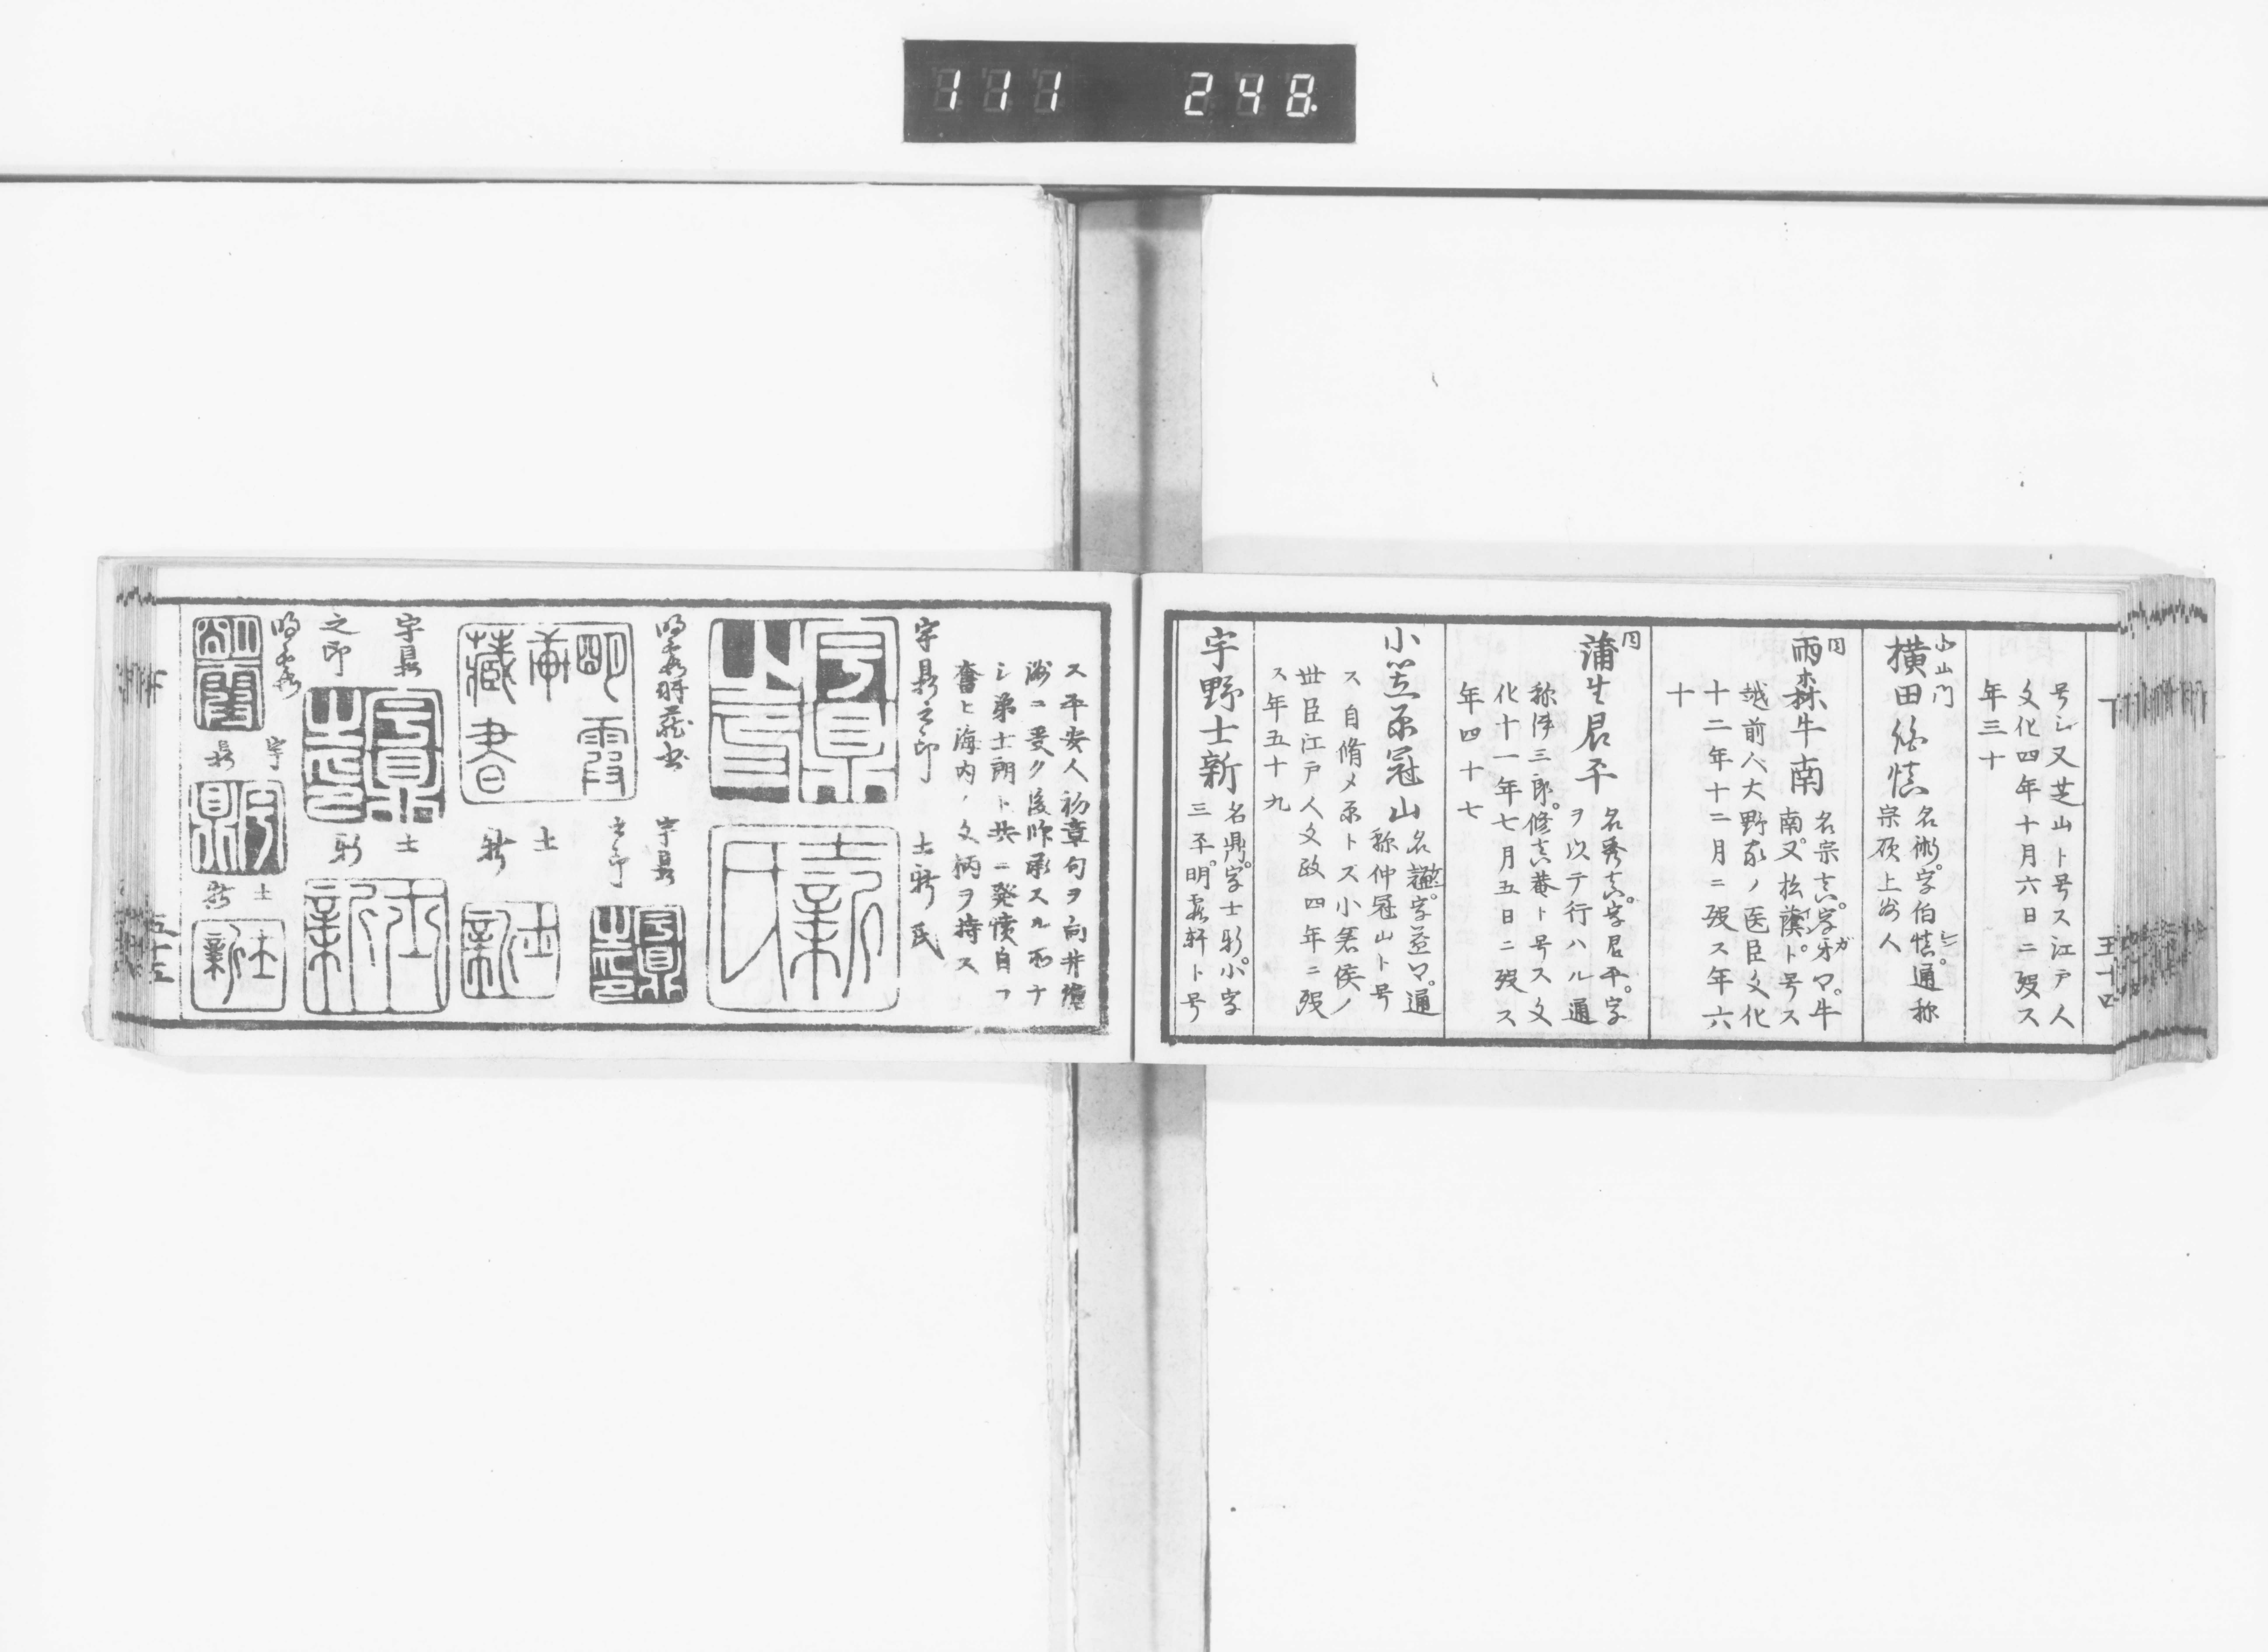 111 248
号シ又芝山ト号ス江戸人
文化四年十月六日ニ歿ス
年三十
小山門
横田
名術字伯慎通称
宗碩上州人
同
雨森牛南
名宗真字牙マ牛
南又松蔭ト号ス
越前人大野家ノ医臣文化
十二年十二月ニ歿ス年六
十
同
蒲生君平
名秀実字君平字
ヲ以テ行ハル通
称伊三郎修静菴ト号ス文
化十一年七月五日ニ歿ス
年四十七
小笠原冠山
名謙字益マ通
称仲冠山ト号
ス自脩メ原トス小笠侯ノ
世臣江戸人文政四年ニ歿
ス年五十九
宇野士新
名鼎字士新小字
三平明霞軒ト号
ス平安人初章句ヲ向井滄
洲ニ受ク後師承スル所ナ
シ弟士朗ト共ニ発憤自ラ
奮ヒ海内ノ文柄ヲ持ス
宇鼎之印
士新氏
宇鼎之印
士新氏
明霞軒蔵書
宇鼎
之印
明霞
軒
藏書
士
新
宇鼎
之印
士
新
明霞
宇
鼎
士
新
五十五